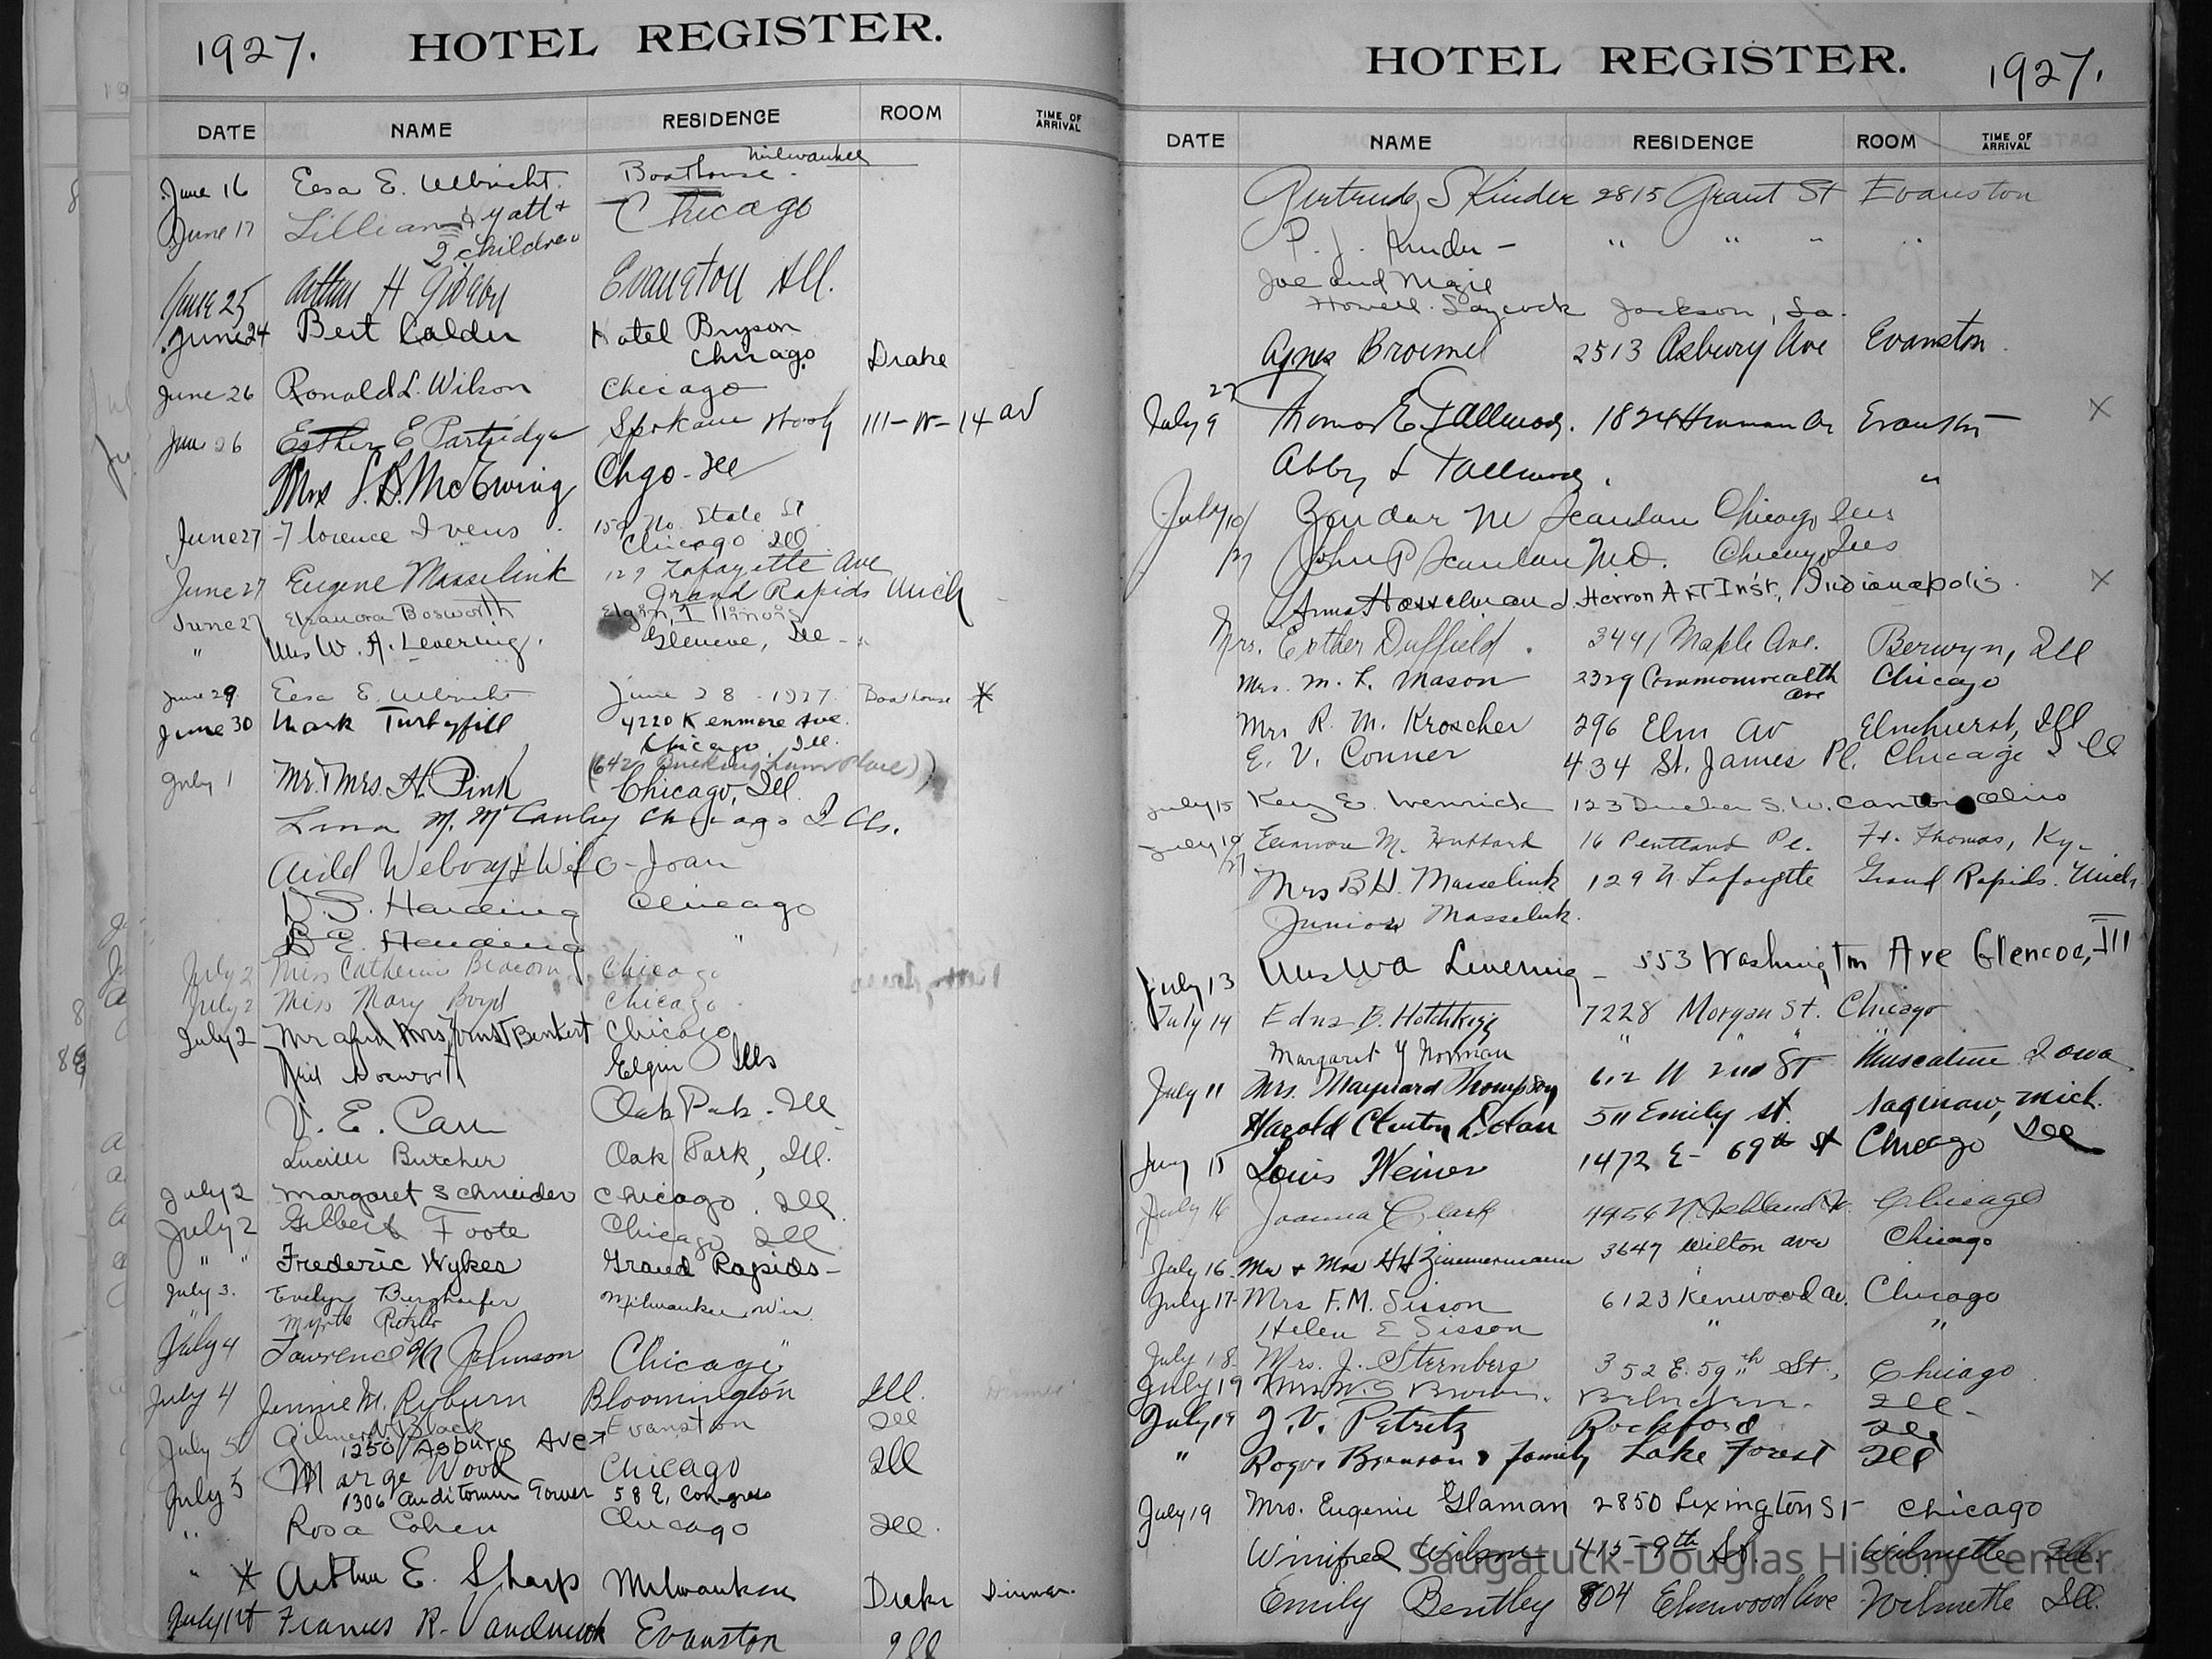 1927. HOTEL REGISTER.
DATE NAME RESIDENCE ROOM TIME OF ARRIVAL
Milwaukee
June 16 Elsa E. Ulbricht. Boathouse.
June 17 Lillian Hyatt + Chicago
2 children
June 25 Arthur H Evanston Ill.
June 24 Bert Calder Hotel Bryson
Chicago. Drake
June 26 Ronald L. Wilson Chicago
June 26 Esther E Partridge Spokane 111-W-14 av
Mrs S. B. McEwing Chgo-Ill
June 27 Florence Ivens 159 No. State St
Chicago Ill
June 27 Eugene Masselink 129 Lafayette Ave
Grand Rapids Mich
June 27 Eleanora Bosworth Elgin, Illinois
" Mrs W. A. Levering. Glencoe, Ill
June 29 Elsa E. Ulbricht June 28 - 1927. Boathouse *
June 30 Mark Turbyfill 4220 Kenmore Ave.
Chicago, Ill.
(642 Buckingham Place)
July 1 Mr. & Mrs. H. Pink Chicago, Ill.
M. McCauley Chicago Ills.
- Joan
D. S. Harding Chicago
B E. Harding "
July 2 Miss Catherine Chicago
July 2 Miss Mary Boyd Chicago
July 2 Mr and Mrs Ernst Benkert Chicago
Neil Bosworth Elgin Ills
V. E. Carr Oak Park - Ill
Lucille Butcher Oak Park, Ill.
July 2 Margaret Schneider Chicago, Ill.
July 2 Gilbert Foote Chicago Ill
" " Frederic Wykes Grand Rapids -
July 3. Evelyn Burghoefer Milwaukee, Wis
" Myrtle "
July 4 Lawrence Johnson Chicago
July 4 Jennie M. Ryburn Bloomington Ill.
July 5 Gilmer V. Black Evanston Ill
1250 Asbury Ave
July 5 Marge Wood Chicago Ill
1306 Auditorium Tower 58 E. Congress
" Rosa Cohen Chicago Ill.
" * Arthur E. Sharp Milwaukee Drake Dinner.
July 1st Frances R. Evanston Ill
HOTEL REGISTER. 1927.
DATE NAME RESIDENCE ROOM TIME OF ARRIVAL
Gertrude S Kinder 2815 Grant St Evanston
P. J. Kinder - " " " "
Joe and
Howell Laycock Jackson, La.
Agnes Broemel 2513 Asbury Ave Evanston.
27
July 9 Thomas E. Tallmadge. 1824 Hinman Av Evanston X
Abby L Tallmadge. "
July 10/ M Scanlan Chicago Ills
27 John P Scanlan M.D. Chicago Ills
Anna Hasselman J. Herron Art Inst, Indianapolis X
Mrs. Esther Duffield. 3441 Maple Ave. Berwyn, Ill
Mrs. M. L. Mason 2329 Commonwealth Chicago
Ave
Mrs R. M. Kroscher 296 Elm Av Elmhurst, Ill
E. V. Conner 434 St. James Pl. Chicago Ill
July 15 E. Wenrick 123 Dueber S.W. Canton Ohio
July 19 Eleanore M. Hubbard 16 Pentland Pl. Ft. Thomas, Ky.
27
Mrs B H. Masselink 129 N. Lafayette Grand Rapids. Mich.
Junior Masselink.
July 13 Mrs W A Levering - 553 Washington Ave Glencoe, Ill
July 14 Edna B. Hotchkiss 7228 Morgan St. Chicago
Margaret Y Norman " " "
July 11 Mrs. Maynard Thompson 612 W 2nd St Muscatine Iowa
Harold Clinton Dolan 511 Emily st. Saginaw, Mich.
July 15 Louis Weiner 1472 E- 69th St Chicago Ill
July 16 Joanna Clark 4456 N. Ashland Av. Chicago
July 16 Mr & Mrs H H Zimmermann 3647 Wilton Ave Chicago
July 17 Mrs F. M. Sisson 6123 Kenwood Av. Chicago
Helen E Sisson " "
July 18 Mrs. J. Sternberg 352 E. 59th St., Chicago
July 19 Mrs W. S Brown. Belvidere. Ill.
July 19 J. V. Petritz Rockford Ill
" Roger Bronson & family Lake Forest Ill
July 19 Mrs. Eugenie Glaman 2850 Lexington St Chicago
Winifred Wilson 415 - 9th St. Wilmette Ill.
Emily Bentley 804 Elmwood Ave Wilmette Ill.
Saugatuck-Douglas History Center